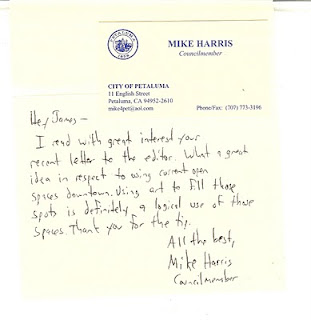 MIKE HARRIS
Councilmember
CITY OF PETALUMA
11 English Street
Petaluma, CA 94952-2610
mike4pet@aol.com
Phone/Fax: (707) 773-3196
Hey James-
I read with great interest your
recent letter to the editor. What a great
idea in respect to using current open
spaces downtown. Using art to fill those
spots is definitely a logical use of those
spaces. Thank you for the tip.
All the best,
Mike Harris
Councilmember